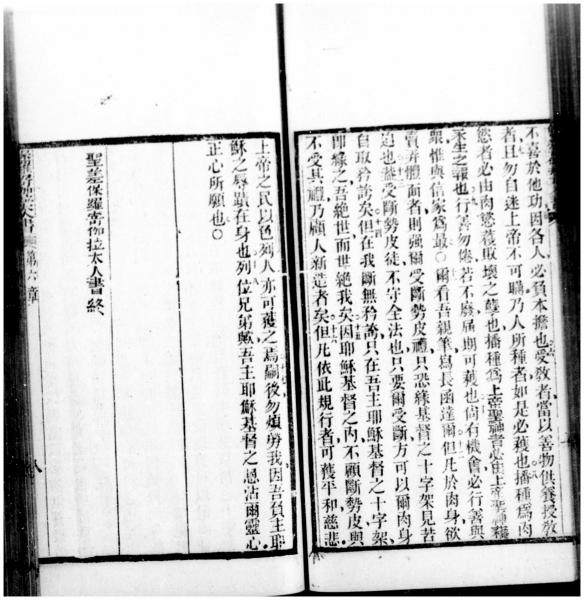 不喜於他功因各人必負本擔也受教者當以善物供養授教
者且勿自迷上帝不可瞞乃人所種者如是必穫也播種爲肉
慾者必由肉慾穫敗壞之孽也播種爲上帝聖神者必由上帝聖神穫
永生之報也行善勿倦若不廢屆期可穫也尙有機會必行善與
眾惟與信家爲最〇爾看吾親筆爲長函達爾但凡於肉身欲
賣弄體面者則强爾受斷勢皮禮只恐緣基督之十字架見害
迫也蓋受斷勢皮徒不守全法也只要爾受斷方可以爾肉身
自取矜誇矣但在我斷無矜誇只在吾主耶穌基督之十字架
即緣之吾絕世而世絕我矣因耶穌基督之內不顧斷勢皮與
不受其禮乃顧人新造者矣但凡依此規行者可獲平和慈悲
上帝之民以色列人亦可獲之焉嗣後勿煩勞我因吾負主耶
穌之辱蹟在身也列位兄弟歟吾主耶穌基督之恩沾爾靈心
正心所願也〇
聖差保羅寄伽拉太人書終
第六章
八